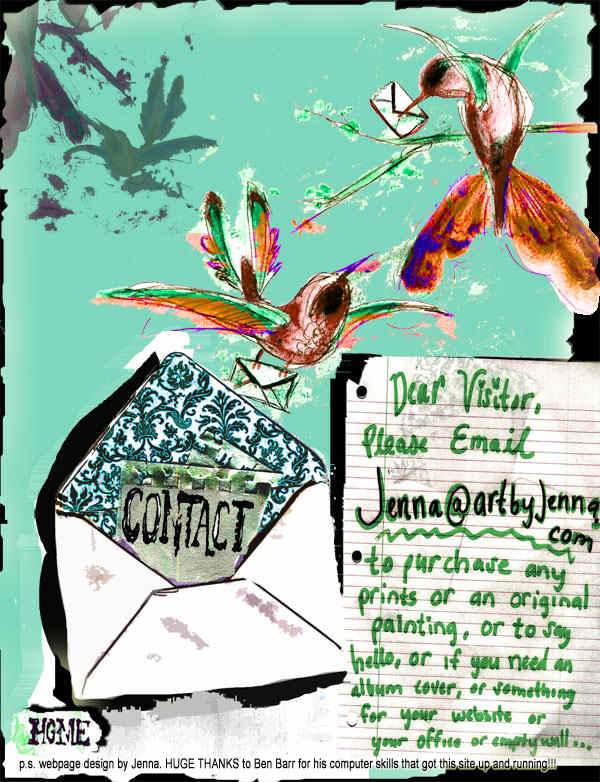 Dear Visitor,
Please Email
Jenna@artbyJenna
com
to purchase any
prints or an original
painting, or to say
hello, or if you need an
album cover, or something
for your website or
your office or empty wall...
CONTACT
HOME
p.s. webpage design by Jenna. HUGE THANKS to Ben Barr for his computer skills that got this site up and running!!!